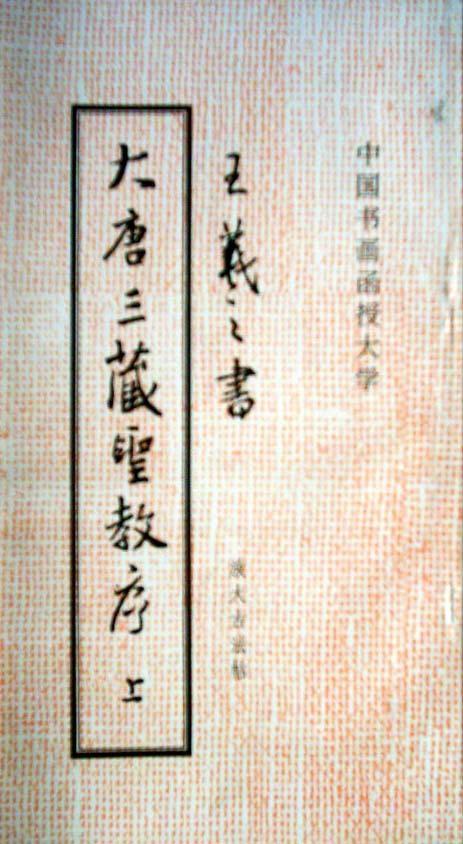 中国书画函授大学
王羲之書
放大古法帖
大唐三藏聖教序 上